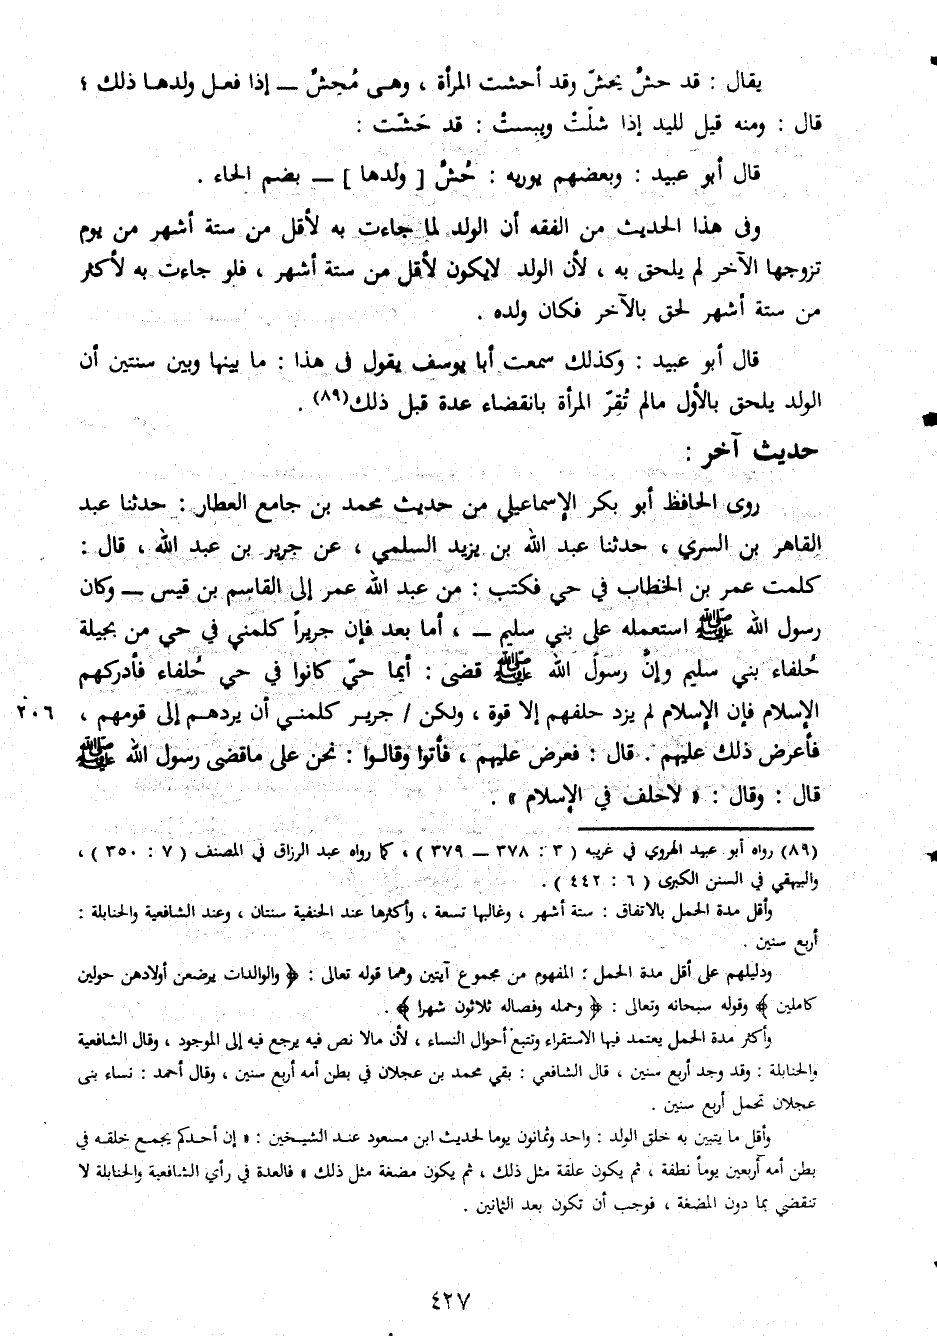 يقال : قد حشّ يحشّ وقد أحشت المرأة ، وهى مُحِشّ ــ إذا فعل ولدها ذلك ؛
قال : ومنه قيل لليد إذا شلّتْ ويبستْ : قد حَشّت :
قال أبو عبيد : وبعضهم يوريه : حُشّ [ ولدها ] ــ بضم الحاء .
وفى هذا الحديث من الفقه أن الولد لما جاءت به لأقل من ستة أشهر من يوم
تزوجها الآخر لم يلحق به ، لأن الولد لايكون لأقل من ستة أشهر ، فلو جاءت به لأكثر
من ستة أشهر لحق بالآخر فكان ولده .
قال أبو عبيد : وكذلك سمعت أبا يوسف يقول فى هذا : ما بينها وبين سنتين أن
الولد يلحق بالأول مالم تُقِرّ المرأة بانقضاء عدة قبل ذلك(٨٩) .
حديث آخر :
روى الحافظ أبو بكر الإسماعيلي من حديث محمد بن جامع العطار : حدثنا عبد
القاهر بن السري ، حدثنا عبد الله بن يزيد السلمي ، عن جرير بن عبد الله ، قال :
كلمت عمر بن الخطاب في حي فكتب : من عبد الله عمر إلى القاسم بن قيس ــ وكان
رسول الله ﷺ استعمله على بني سليم ــ ، أما بعد فإن جريراً كلمني في حي من بجيلة
حُلفاء بني سليم وإنّ رسول الله ﷺ قضى : أيما حيّ كانوا في حي حُلفاء فأدركهم
الإسلام فإن الإسلام لم يزد حلفهم إلا قوة ، ولكن / جرير كلمني أن يردهم إلى قومهم ، ٢٠٦
فأعرض ذلك عليهم . قال : فعرض عليهم ، فأتوا وقالوا : نحن على ماقضى رسول الله ﷺ
قال : وقال : « لاحلف في الإسلام » .
(٨٩) رواه أبو عبيد الهروي في غريبه ( ٣ : ٣٧٨ ــ ٣٧٩ ) ، كما رواه عبد الرزاق في المصنف ( ٧ : ٣٥٠ ) ،
والبيهقي في السنن الكبرى ( ٦ : ٤٤٢ ) .
وأقل مدة الحمل بالاتفاق : ستة أشهر ، وغالبها تسعة ، وأكثرها عند الحنفية سنتان ، وعند الشافعية والحنابلة :
أربع سنين .
ودليلهم على أقل مدة الحمل ؛ المفهوم من مجموع آيتين وهما قوله تعالى : ﴿ والوالدات يرضعن أولادهن حولين
كاملين ﴾ وقوله سبحانه وتعالى : ﴿ وحمله وفصاله ثلاثون شهرا ﴾ .
وأكثر مدة الحمل يعتمد فيها الاستقراء وتتبع أحوال النساء ، لأن مالا نص فيه يرجع فيه إلى الموجود ، وقال الشافعية
والحنابلة : وقد وجد أربع سنين ، قال الشافعي : بقي محمد بن عجلان في بطن أمه أربع سنين ، وقال أحمد : نساء بنى
عجلان تحمل أربع سنين .
وأقل ما يتبين به خلق الولد : واحد وثمانون يوما لحديث ابن مسعود عند الشيخين : « إن أحدكم يجمع خلقه في
بطن أمه أربعين يوماً نطفة ، ثم يكون علقة مثل ذلك ، ثم يكون مضغة مثل ذلك » فالعدة في رأي الشافعية والحنابلة لا
تنقضي بما دون المضغة ، فوجب أن تكون بعد الثمانين .
٤٢٧